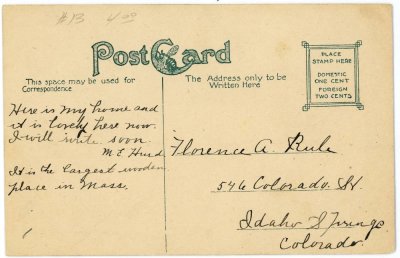 #13 4.00
Post Card
This space may be used for
Correspondence
The Address only to be
Written Here
PLACE
STAMP HERE
DOMESTIC
ONE CENT
FOREIGN
TWO CENTS
Here is my home and
it is lovely here now.
I will write soon.
M E Hurd
It is the largest wooden
place in Mass.
Florence A. Rule
546 Colorado. St.
Idaho Springs
Colorado.